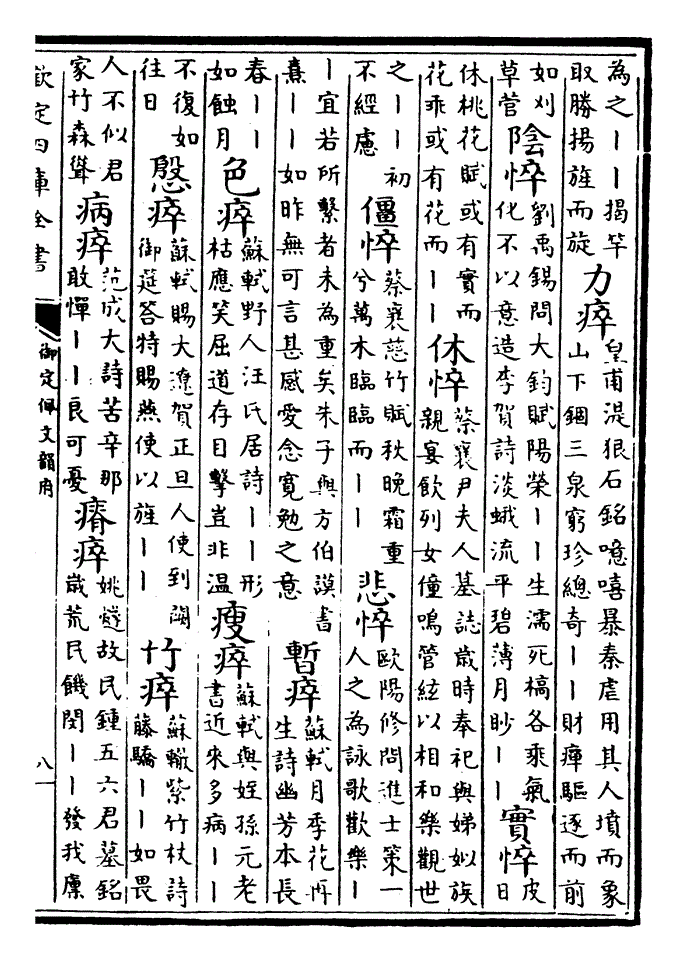 為之丨丨揭竿取勝揚旌而旋 力瘁 皇甫湜狠石銘噫嘻暴秦虐用其人墳而象山下錮三泉窮珍總奇丨丨財瘅驅逐而前
如刈草菅 陰悴 劉禹錫問大鈞賦陽榮丨丨生濡死槁各乘氣化不以意造李賀詩淡蛾流平碧薄月眇丨丨 實悴 皮日
休桃花賦或有實而花乖或有花而丨丨 休悴 蔡襄尹夫人墓誌歲時奉祀與娣姒族親宴飲列女僮鳴管絃以相和樂觀世
之丨丨初不經慮 僵悴 蔡襄慈竹賦秋晚霜重兮萬木臨臨而丨丨 悲悴 歐陽修問進士策一人之為詠歌歡樂丨
丨宜若所繫者未為重矣朱子與方伯謨書熹丨丨如昨無可言甚感愛念寬勉之意 暫瘁 蘇軾月季花再生詩幽芳本長
春丨丨如蝕月 色瘁 蘇軾野人汪氏居詩丨丨形枯應笑屈道存目擊豈非溫 瘦瘁 蘇軾與姪孫元老書近來多病丨丨
不復如往日 慇瘁 蘇軾賜大遼賀正旦人使到闕御筵答特賜燕使以旌丨丨 竹瘁 蘇轍紫竹杖詩藤驕丨丨如畏
人不似君家竹森聳 病瘁 范成大詩苦辛那敢憚丨丨良可憂 瘠瘁 姚燧故民鍾五六君墓銘歲荒民饑閔丨丨發我廩
欽定四庫全書
御定佩文韻府
八